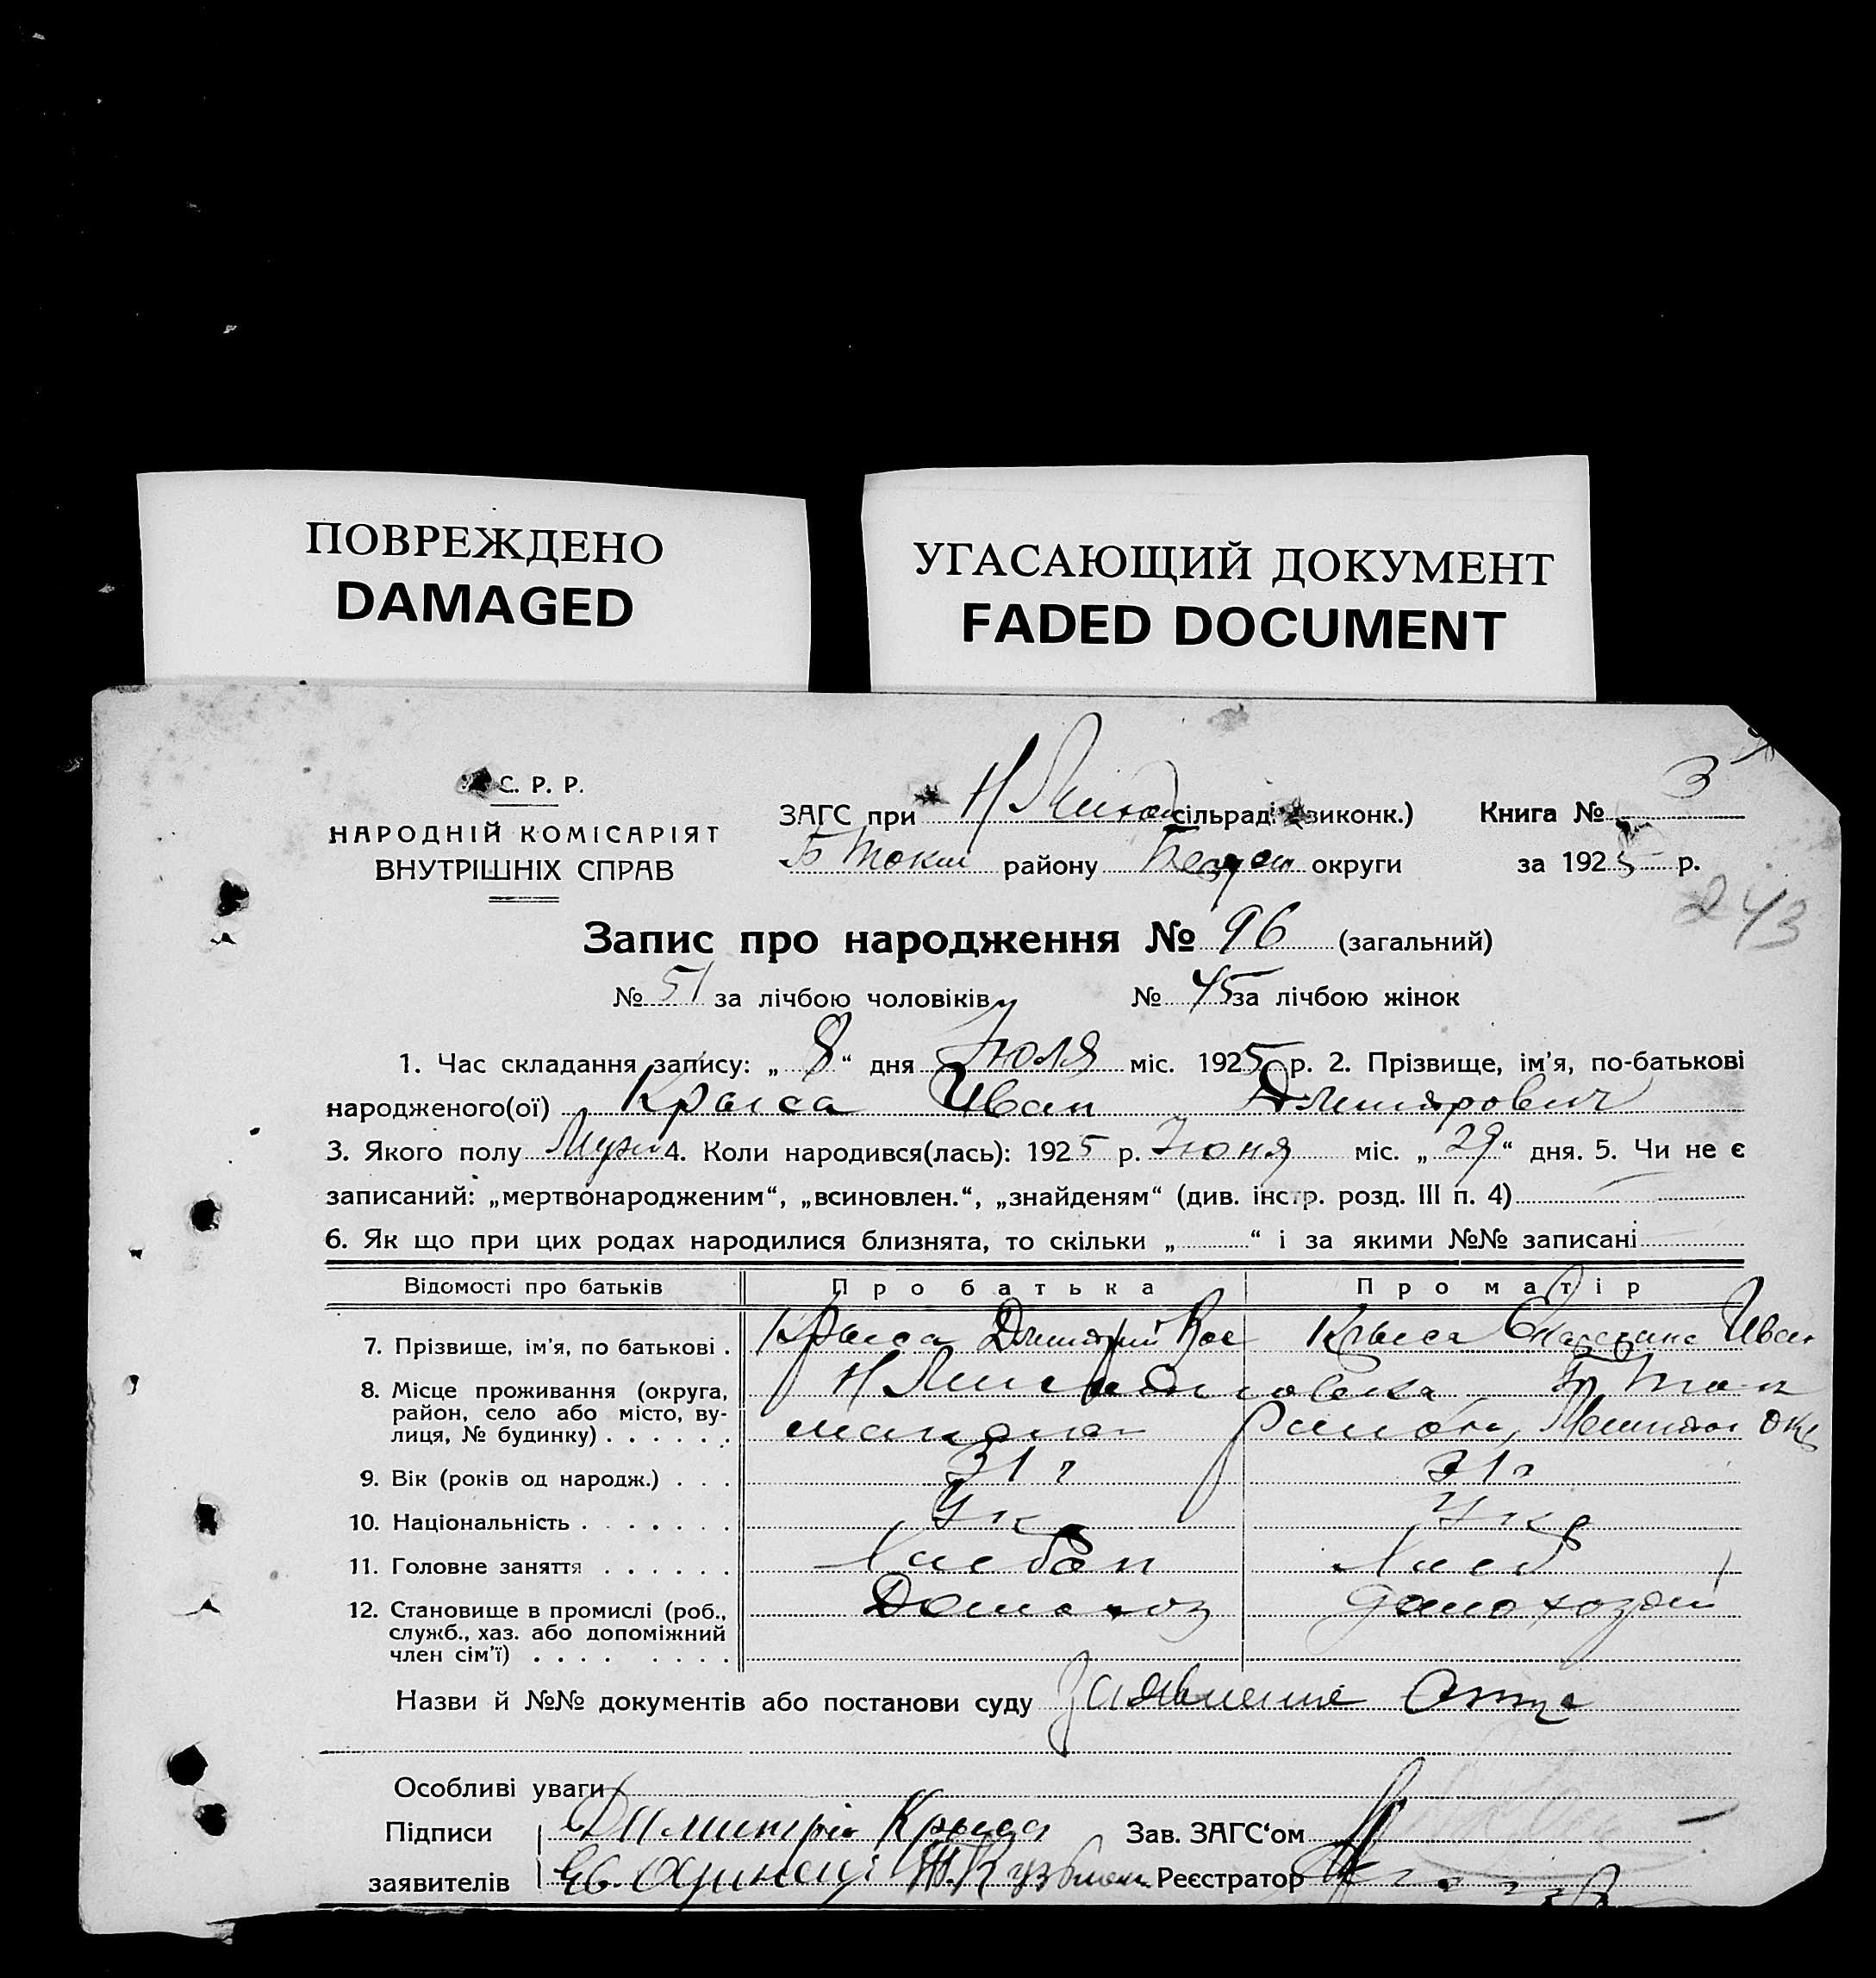 ПОВРЕЖДЕНО
DAMAGED
УГАСАЮЩИЙ ДОКУМЕНТ
FADED DOCUMENT
С. Р. Р.
НАРОДНІЙ КОМІСАРІЯТ
ВНУТРІШНІХ СПРАВ
ЗАГС при Н сільраді виконк.) Книга № 3
Б Токм району округи за 1925 р.
243
Запис про народження № 96 (загальний)
№ 51 за лічбою чоловіків № 45 за лічбою жінок
1. Час складання запису: „ 8 “ дня Июля міс. 1925 р. 2. Прізвище, ім'я, по-батькові
народженого(ої) Крыса Иван Дмитрович
3. Якого полу Муж 4. Коли народився(лась): 1925 р. Июня міс. „ 29 “ дня. 5. Чи не є
записаний: „мертвонародженим“, „всиновлен.“, „знайденям“ (див. інстр. розд. III п. 4)
6. Як що при цих родах народилися близнята, то скільки „ “ і за якими №№ записані
Відомості про батьків Про батька Про матір
7. Прізвище, ім'я, по батькові . Крыса Дмитрий Крыса Иван
8. Місце проживання (округа,
район, село або місто, ву-
лиця, № будинку) . . . . . . района, окр
9. Вік (років од народж.) . . . 31 г 31 г
10. Національність . . . . . . . Укр Укр
11. Головне заняття . . . . . . Хлебоп Хлеб
12. Становище в промислі (роб., Домохоз домохозяй
служб., хаз. або допоміжний
член сім'ї) . . . . . . . .
Назви й №№ документів або постанови суду Заявление Отца
Особливі уваги
Підписи Крыса Зав. ЗАГС‘ом
заявителів Реєстратор